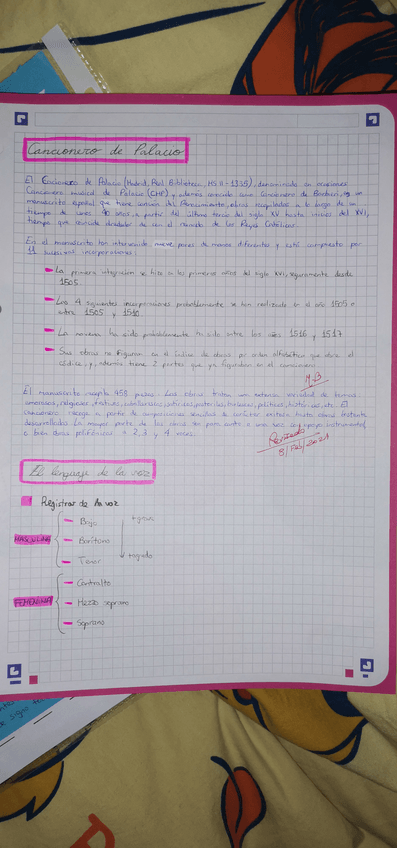 Cancionero de Palacio
El Cacionero de Palacio (Madrid, Real Biblioteca, MS II-1335), denominado en ocasiones
Cancionero musical de Palacio (CMP), y además conocido como Cancionero de Barbieri, es un
manuscrito español que tiene música del Renacimiento, obras recopiladas a lo largo de un
tiempo de unos 40 años, a partir del último tercio del siglo XV hasta inicios del XVI,
tiempo que coincide alrededor de con el reinado de los Reyes Católicos.
En el manuscrito han intervenido nueve pares de manos diferentes y está compuesto por
11 incorporaciones:
La primera integración se hizo a los primeros años del siglo XVI, seguramente desde
1505.
Los 4 siguientes incorporaciones probablemente se han realizado en el año 1505 o
entre 1505 y 1510.
La novena ha sido probablemente ha sido entre los años 1516 y 1517
Sus obras no figuran en el índice de obras por orden alfabético que abre el
códice, y, además tiene 2 partes que ya figuraban en el cancionero.
M.B
El manuscrito 458 Las obras tratan una extensa variedad de temas:
amorosos, religiosos, festivos, caballerescos, satíricos, pastoriles, burlescos, políticos, históricos, etc. El
cancionero recoge a partir de composiciones sencillas de carácter hasta obras bastante
desarrolladas. La mayor parte de las obras son para canto a una voz con apoyo instrumental
o bien obras polifónicas a 2, 3 y 4 voces.
Revisado
8/Feb/2021
El lenguaje de la voz
Registros de la voz
MASCULINA
Bajo
+grave
Barítono
Tenor
+agudo
FEMENINA
Contralto
Mezzo soprano
Soprano